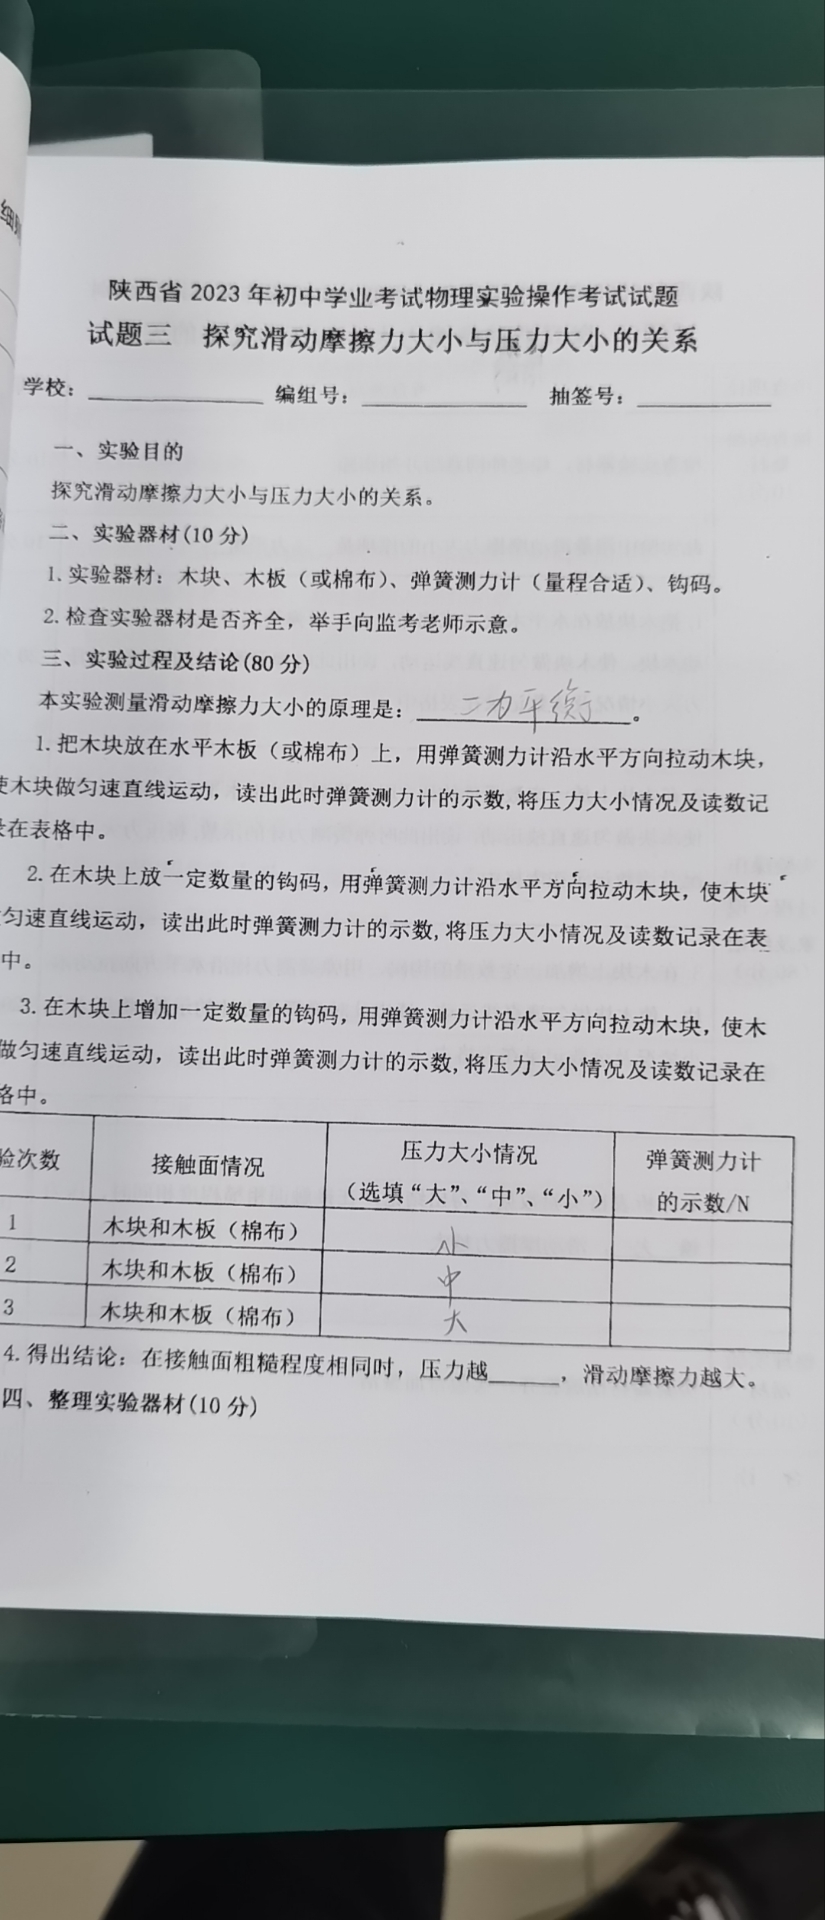 陕西省2023年初中学业考试物理实验操作考试试题
试题三 探究滑动摩擦力大小与压力大小的关系
学校： 编组号： 抽签号：
一、实验目的
探究滑动摩擦力大小与压力大小的关系。
二、实验器材(10分)
1.实验器材：木块、木板（或棉布）、弹簧测力计（量程合适）、钩码。
2.检查实验器材是否齐全，举手向监考老师示意。
三、实验过程及结论(80分)
本实验测量滑动摩擦力大小的原理是：二力平衡。
1.把木块放在水平木板（或棉布）上，用弹簧测力计沿水平方向拉动木块，
使木块做匀速直线运动，读出此时弹簧测力计的示数,将压力大小情况及读数记
录在表格中。
2.在木块上放一定数量的钩码，用弹簧测力计沿水平方向拉动木块，使木块
匀速直线运动，读出此时弹簧测力计的示数,将压力大小情况及读数记录在表
中。
3.在木块上增加一定数量的钩码，用弹簧测力计沿水平方向拉动木块，使木
做匀速直线运动，读出此时弹簧测力计的示数,将压力大小情况及读数记录在
格中。
验次数 接触面情况 压力大小情况 弹簧测力计
（选填“大”、“中”、“小”） 的示数/N
1 木块和木板（棉布） 小
2 木块和木板（棉布） 中
3 木块和木板（棉布） 大
4.得出结论：在接触面粗糙程度相同时，压力越______，滑动摩擦力越大。
四、整理实验器材(10分)